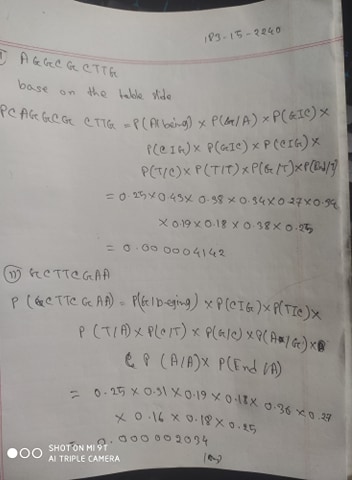 183-15-2240
AGGCGCTTG
base on the table slide
PCAGGCGCG CTTG = P(A|being) × P(G/A) × P(G|C) ×
P(C|G) × P(G|C) × P(C|G) ×
P(T/C) × P(T/T) × P(G/T) × P(End/T)
= 0.25 × 0.43 × 0.38 × 0.34 × 0.27 × 0.34
× 0.19 × 0.18 × 0.38 × 0.25
= 0.000004142
II) GCTTCGAA
P (GCTTCGAA) = P(G/beging) × P(C|G) × P(T|C) ×
P (T/A) × P(C/T) × P(G/C) × P(A/G) ×
P (A/A) × P(End/A)
= 0.25 × 0.31 × 0.19 × 0.18 × 0.36 × 0.27
× 0.16 × 0.18 × 0.25
= 0.000002034
SHOT ON MI 9T
AI TRIPLE CAMERA